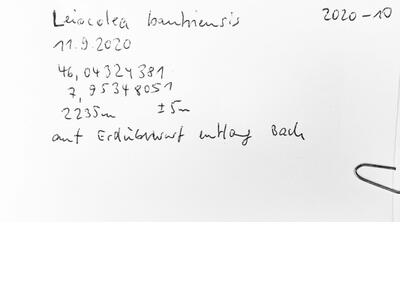 Leiocolea bantriensis 2020-10
11.9.2020
46,04324381
7,95348051
2235m ±5m
auf entlang Bach